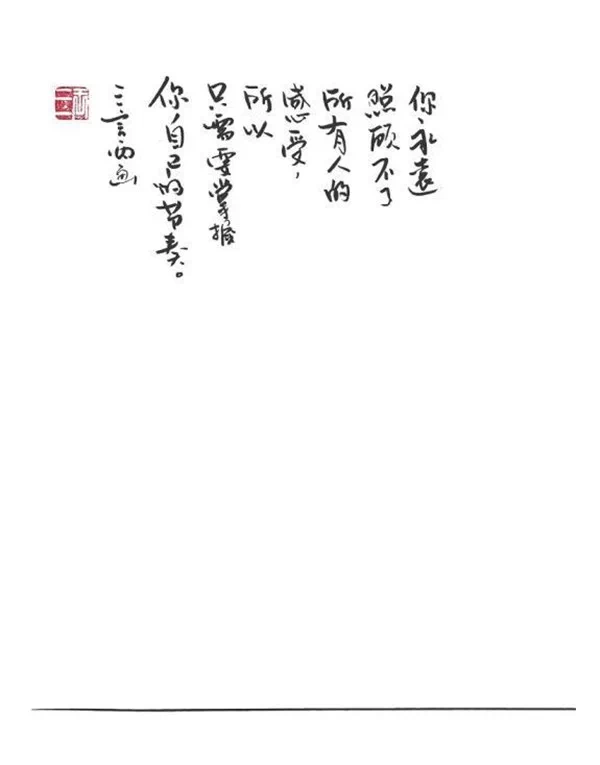 你永遠
照顾不了
所有人的
感受，
所以
只需要掌握
你自己的节奏。
三言两画